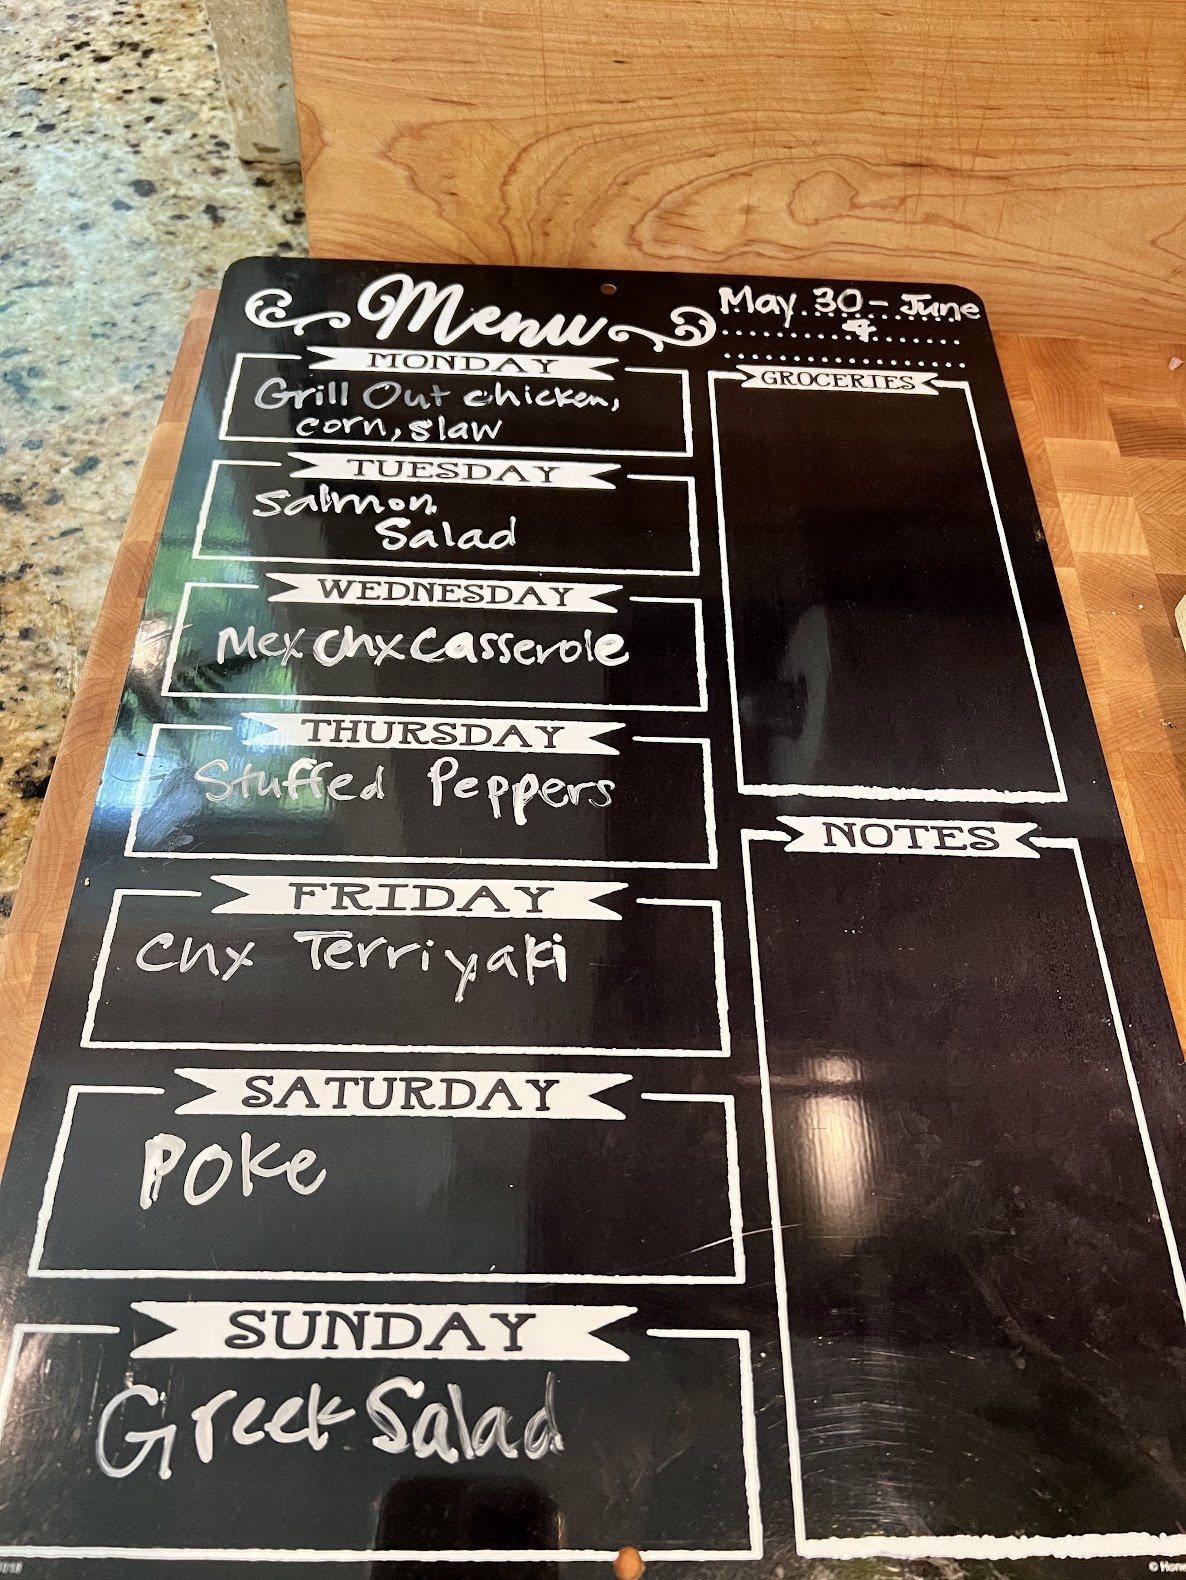 Menu
May 30 - June
4
MONDAY
Grill Out chicken,
corn, slaw
TUESDAY
Salmon
Salad
WEDNESDAY
Mex Chx Casserole
THURSDAY
Stuffed Peppers
FRIDAY
Chx Terriyaki
SATURDAY
Poke
SUNDAY
Greek Salad
GROCERIES
NOTES